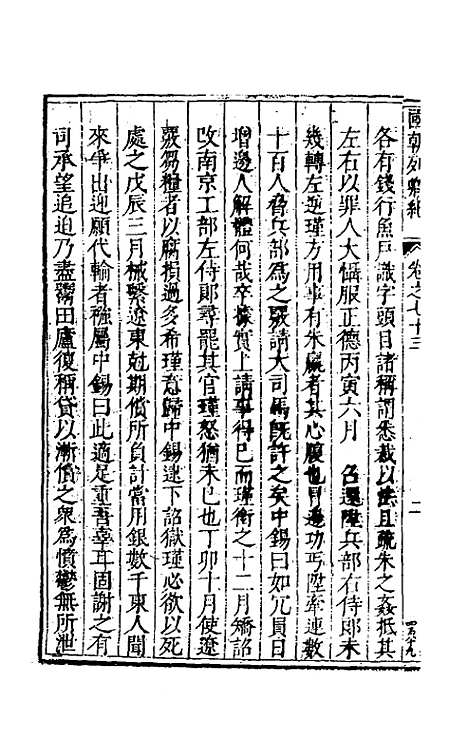 國朝列卿紀 卷之七十三 二
各有錢行魚戶識字頭目諸稱謂悉裁以法且疏朱之姦抵其
左右以罪人大懾服正德丙寅六月 召還陞兵部右侍郎未
幾轉左逆瑾方用事有朱瀛者其心腹也冒邊功丐陞率連數
十百人脅兵部爲之覈請大司馬旣許之矣中錫曰如冗員日
增邊人解體何哉卒據實上請事得已而瑾銜之十二月矯詔
改南京工部左侍郎尋罷其官瑾怒猶未已也丁卯十月使遼
覈芻糧者以腐損過多希瑾意歸中錫逮下詔獄瑾必欲以死
處之戊辰三月械繫遼東尅期償所負計當用銀數千東人聞
來爭出迎願代輸者稱屬中錫曰此適足重吾辜耳固謝之有
司承望追迫乃盡鬻田廬復稱貸以漸償之衆爲憤鬱無所泄